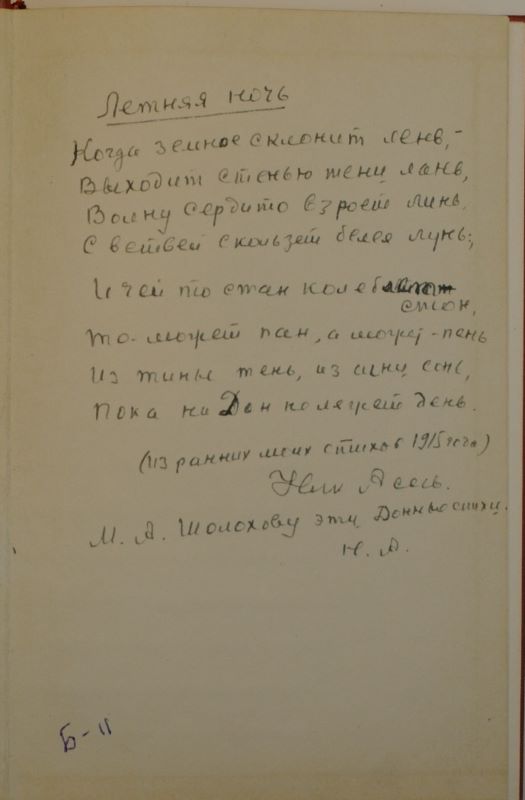 Летняя ночь
Когда земное склонит лень,
Выходит с тенью тени лань,
Волну сердито взроет линь.
С ветвей скользит белея лунь;
И чей то стан колеб
стон,
То-может пан, а может-пень
Из тины тень, из сини сон,
Пока на Дон не ляжет день.
(Из ранних моих стихов 1915 года)
Ник Асеев.
М. А. Шолохову эти Донные стихи.
Н. А.
Б-11